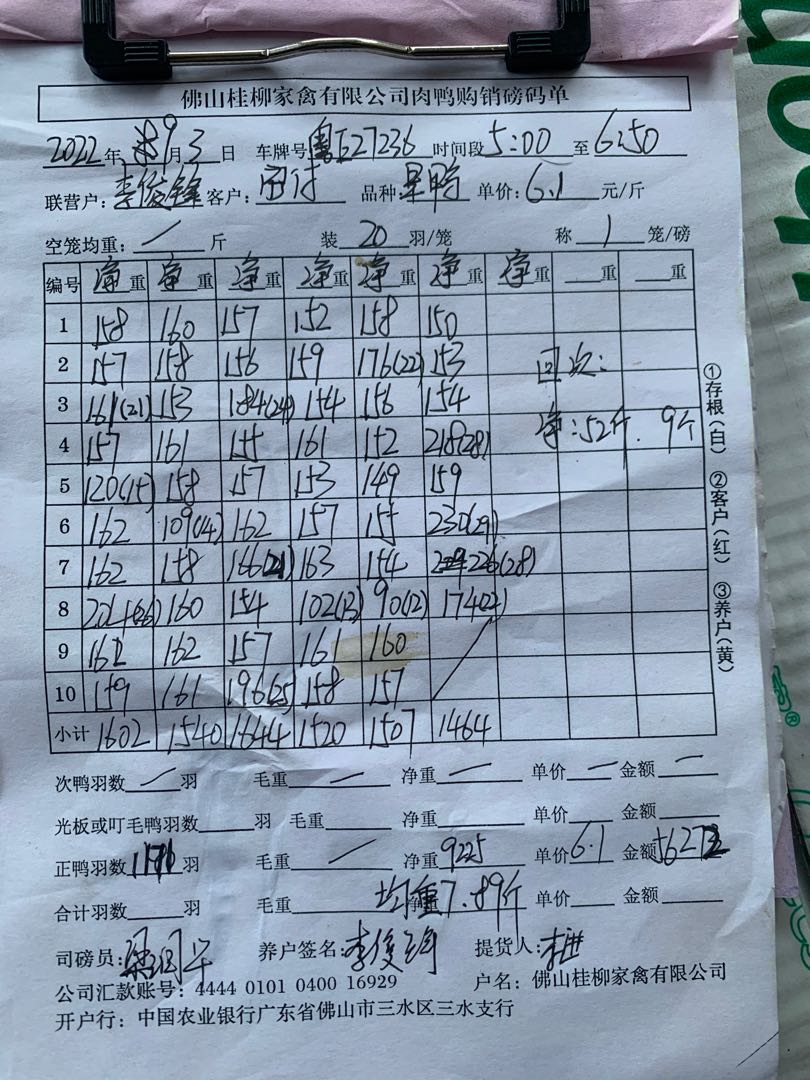 佛山桂柳家禽有限公司肉鸭购销磅码单
2022年 9月 3日 车牌号 粤E27236 时间段 5:00 至 6:50
联营户:李俊锋 客户: 品种 单价:6.1 元/斤
空笼均重: / 斤 装 20 羽/笼 称 1 笼/磅
编号 净重 净重 净重 净重 净重 净重 净重 重 重
1 158 160 157 152 158 150
2 157 158 156 159 176(22) 153 回次:
3 161(21) 153 184(24) 154 156 154
4 157 161 155 161 152 218(28) 净:52斤. 9个
5 120(15) 158 157 153 149 159
6 162 109(14) 162 157 155 230(29)
7 162 158 166(21) 163 154 226(28)
8 204(26) 160 154 102(13) 90(12) 174(22)
9 162 162 157 161 160
10 159 161 196(25) 158 157
小计 1602 1540 1644 1520 1507 1464
次鸭羽数 / 羽 毛重 / 净重 / 单价 / 金额 /
光板或叮毛鸭羽数 羽 毛重 净重 单价 金额
正鸭羽数 羽 毛重 / 净重 9225 单价 6.1 金额 56272
合计羽数 羽 毛重 均重7.89斤 单价 金额
司磅员: 养户签名: 李俊锋 提货人:
公司汇款账号: 4444 0101 0400 16929 户名: 佛山桂柳家禽有限公司
开户行: 中国农业银行广东省佛山市三水区三水支行
①存根(白) ②客户(红) ③养户(黄)